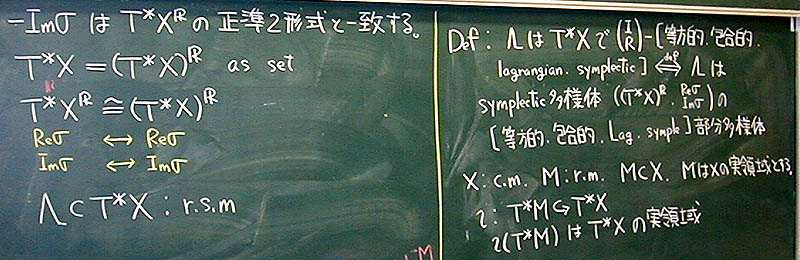 -Imσ は T*X^ℝ の 正準2形式と一致する。
T*X = (T*X)^ℝ as set
T*X^ℝ ≅ (T*X)^ℝ
Reσ ↔ Reσ
Imσ ↔ Imσ
Λ⊂T*X : r.s.m
Def : Λは T*X で (I R)-[等方的、包合的、
lagrangian. symplectic] ⇔def Λは
symplectic多様体 ((T*X)^ℝ. Reσ Imσ)の
[等方的、包合的、Lag. symple]部分多様体
X: c.m. M: r.m. M⊂X. MはXの実領域とする。
ι: T*M ↪ T*X
ι(T*M) は T*X の実領域